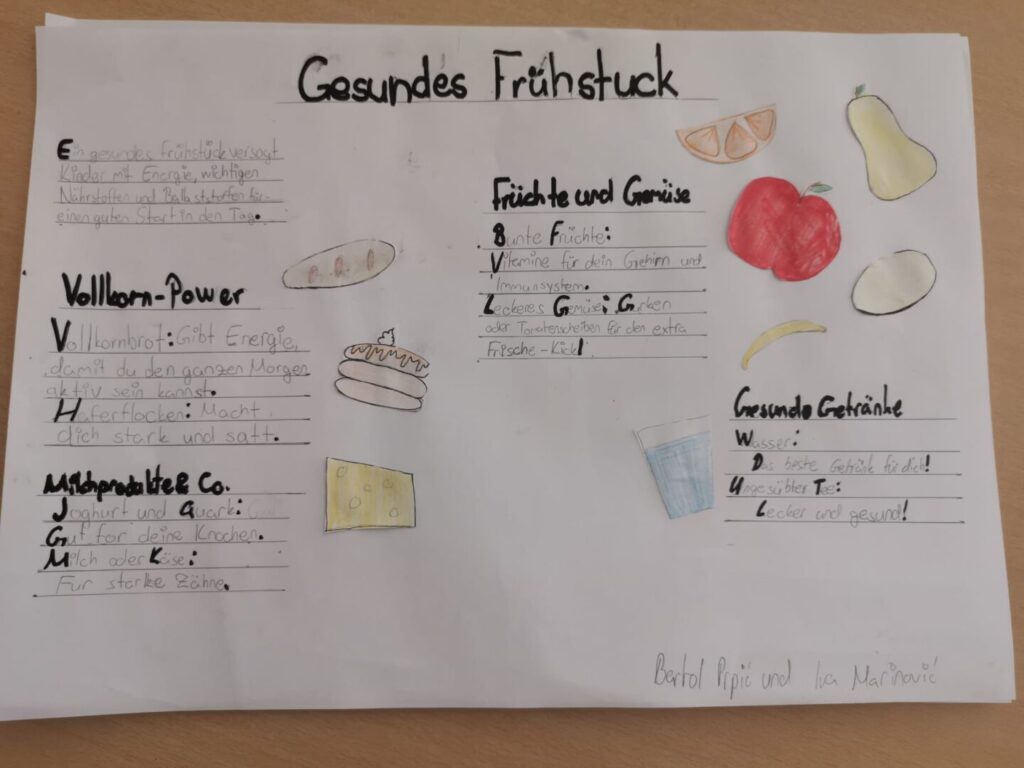 Gesundes Frühstuck
Ein gesundes Frühstück versorgt
Kinder mit Energie, wichtigen
Nährstoffen und Ballaststoffen für
einen guten Start in den Tag.
Vollkorn-Power
Vollkornbrot: Gibt Energie,
damit du den ganzen Morgen
aktiv sein kannst.
Haferflocken: Macht
dich stark und satt.
Milchprodukte & Co.
Joghurt und Quark:
Gut für deine Knochen.
Milch oder Käse:
Für starke Zähne.
Früchte und Gemüse
Bunte Früchte:
Vitamine für dein Gehirn und
Immunsystem.
Leckeres Gemüse: Gurken
oder Tomatenscheiben für den extra
Frische-Kick!
Gesunde Getränke
Wasser:
Das beste Getränk für dich!
Ungesüßter Tee:
Lecker und gesund!
Bartol Pipić und Iva Marinović